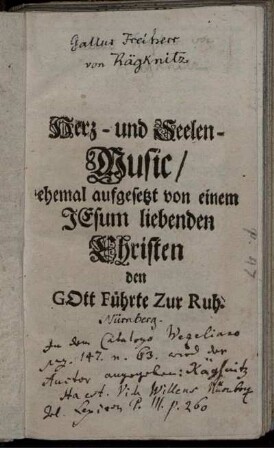 Gallus Freiherr
von Rägknitz.
Herz- und Seelen-
Music/
ehemal aufgesetzt von einem
JEsum liebenden
Christen
den
GOtt Führte Zur Ruh.
Nürnberg.
In dem Catalogo
pag. 147. n. 63. wird der
Auctor angegeben: Rägknitz
Vid. Willens Nürnberg
Lexicon P. III. p. 260